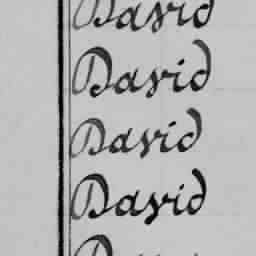 David
David
David
David